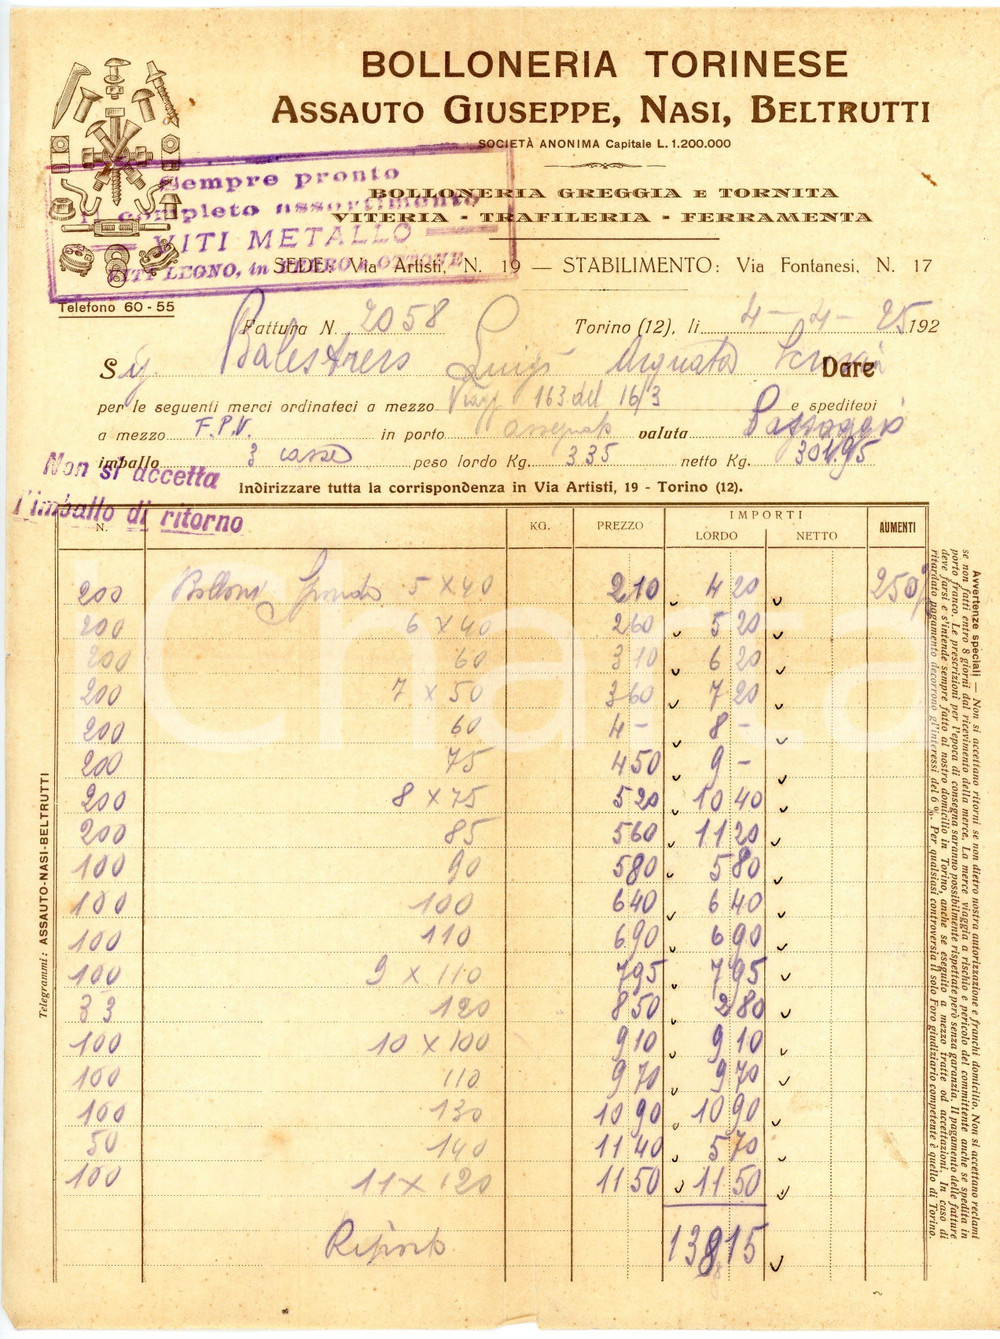 BOLLONERIA TORINESE
ASSAUTO GIUSEPPE, NASI, BELTRUTTI
SOCIETÀ ANONIMA Capitale L. 1.200.000
BOLLONERIA GREGGIA E TORNITA
VITERIA - TRAFILERIA - FERRAMENTA
SEDE: Via Artisti, N. 19 — STABILIMENTO: Via Fontanesi, N. 17
Sempre pronto
il completo assortimento
VITI METALLO
VITI LEGNO, in FERRO e OTTONE
Telefono 60-55
Fattura N. 2058 Torino (12), li 4-4-25 192
Sig. Balestrero Luigi Arquata Scrivia Dare
per le seguenti merci ordinateci a mezzo Viagg 163 del 16/3 e speditevi
a mezzo F.P.V. in porto assegnato valuta
imballo 3 casse peso lordo Kg. 335 netto Kg. 301.95
Non si accetta
l'imballo di ritorno
Indirizzare tutta la corrispondenza in Via Artisti, 19 - Torino (12).
N. KG. PREZZO IMPORTI LORDO NETTO AUMENTI
200 Bolloni 5 x 40 210 4 20 250%
200 6 x 40 260 5 20
200 60 310 6 20
200 7 x 50 360 7 20
200 60 4- 8-
200 75 450 9-
200 8 x 75 520 10 40
200 85 560 11 20
100 90 580 5 80
100 100 640 6 40
100 110 690 6 90
100 9 x 110 795 7 95
33 120 850 2 80
100 10 x 100 910 9 10
100 110 970 9 70
100 130 1090 10 90
50 140 1140 5 70
100 11 x 120 1150 11 50
Riporto 138 15
Telegrammi: ASSAUTO-NASI-BELTRUTTI
Avvertenze speciali — Non si accettano ritorni se non dietro nostra autorizzazione e franchi domicilio. Non si accettano reclami
se non fatti entro 8 giorni dal ricevimento della merce. La merce viaggia a rischio e pericolo del committente anche se spedita in
porto franco. Le prescrizioni per l'epoca di consegna saranno possibilmente rispettate però senza garanzia. Il pagamento delle fatture
deve farsi e s'intende sempre fatto al nostro domicilio in Torino, anche se eseguito a mezzo tratte od accettazioni. In caso di
ritardato pagamento decorrono gl'interessi del 6%. Per qualsiasi controversia il solo Foro giudiziario competente è quello di Torino.
Charta